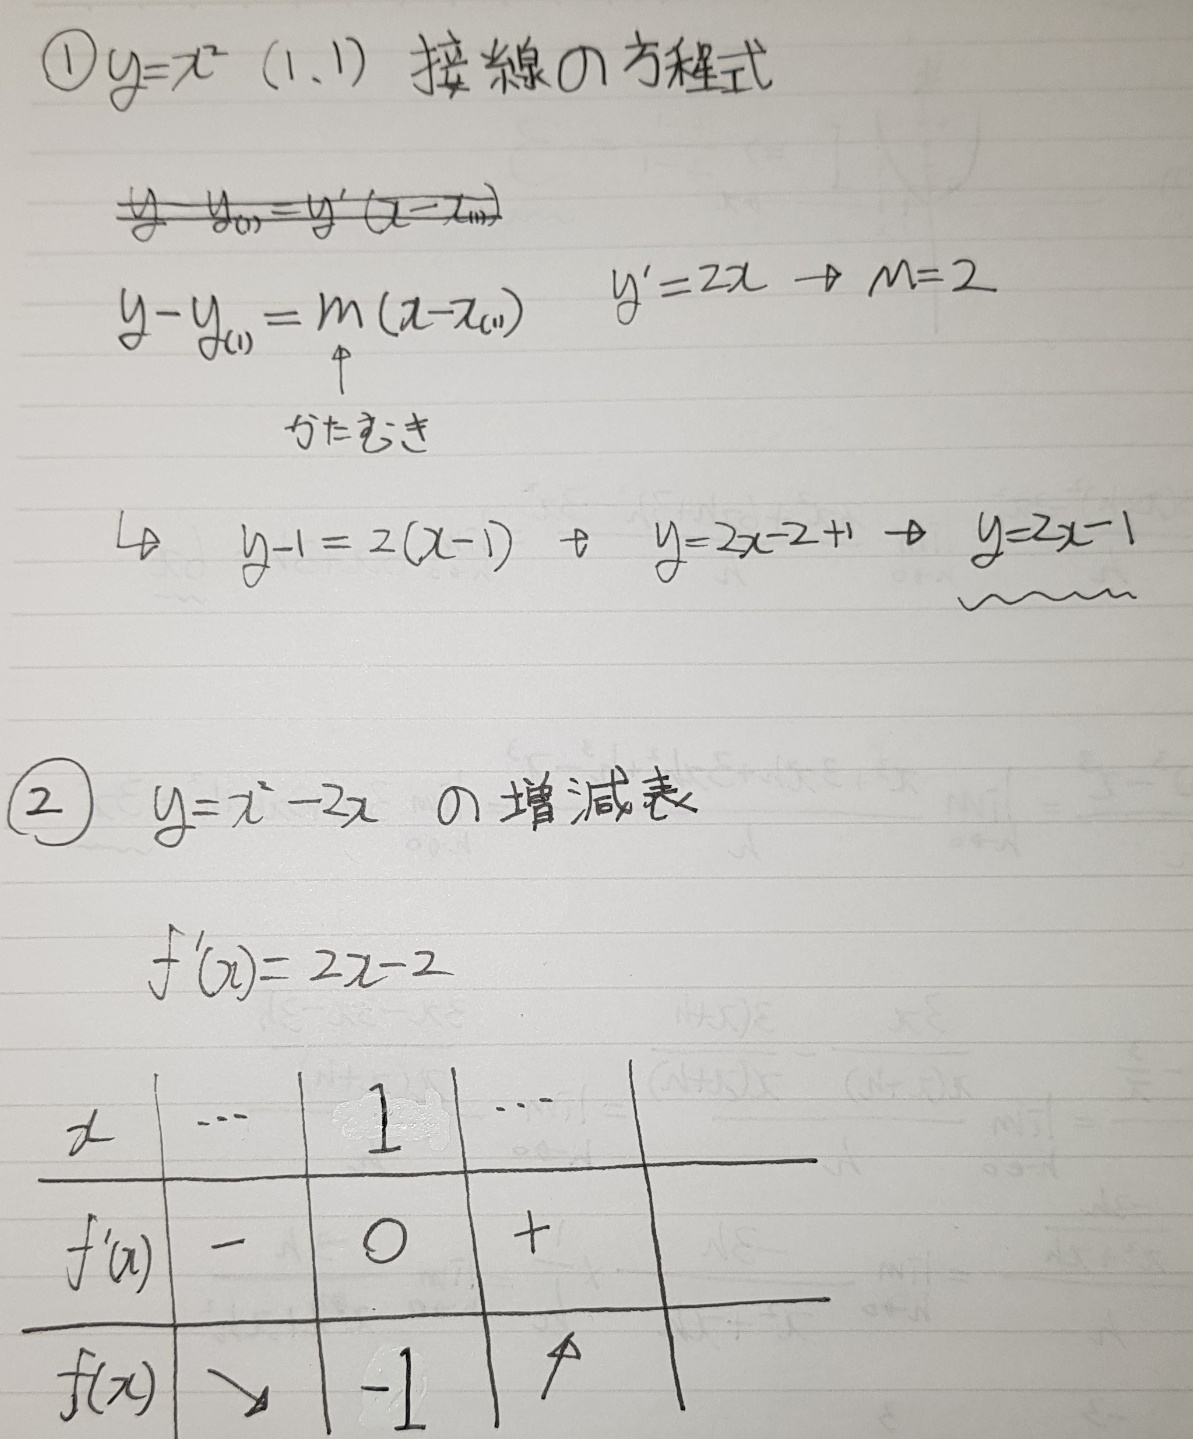 ① y=x² (1、1) 接線の方程式
y-y₍₁₎=y'(x-x₍₁₎)
y-y₍₁₎=m(x-x₍₁₎) y'=2x → m=2
↑
かたむき
↳ y-1=2(x-1) → y=2x-2+1 → y=2x-1
② y=x²-2x の増減表
f'(x)=2x-2
x … 1 …
f'(x) - 0 +
f(x) ↘ -1 ↗